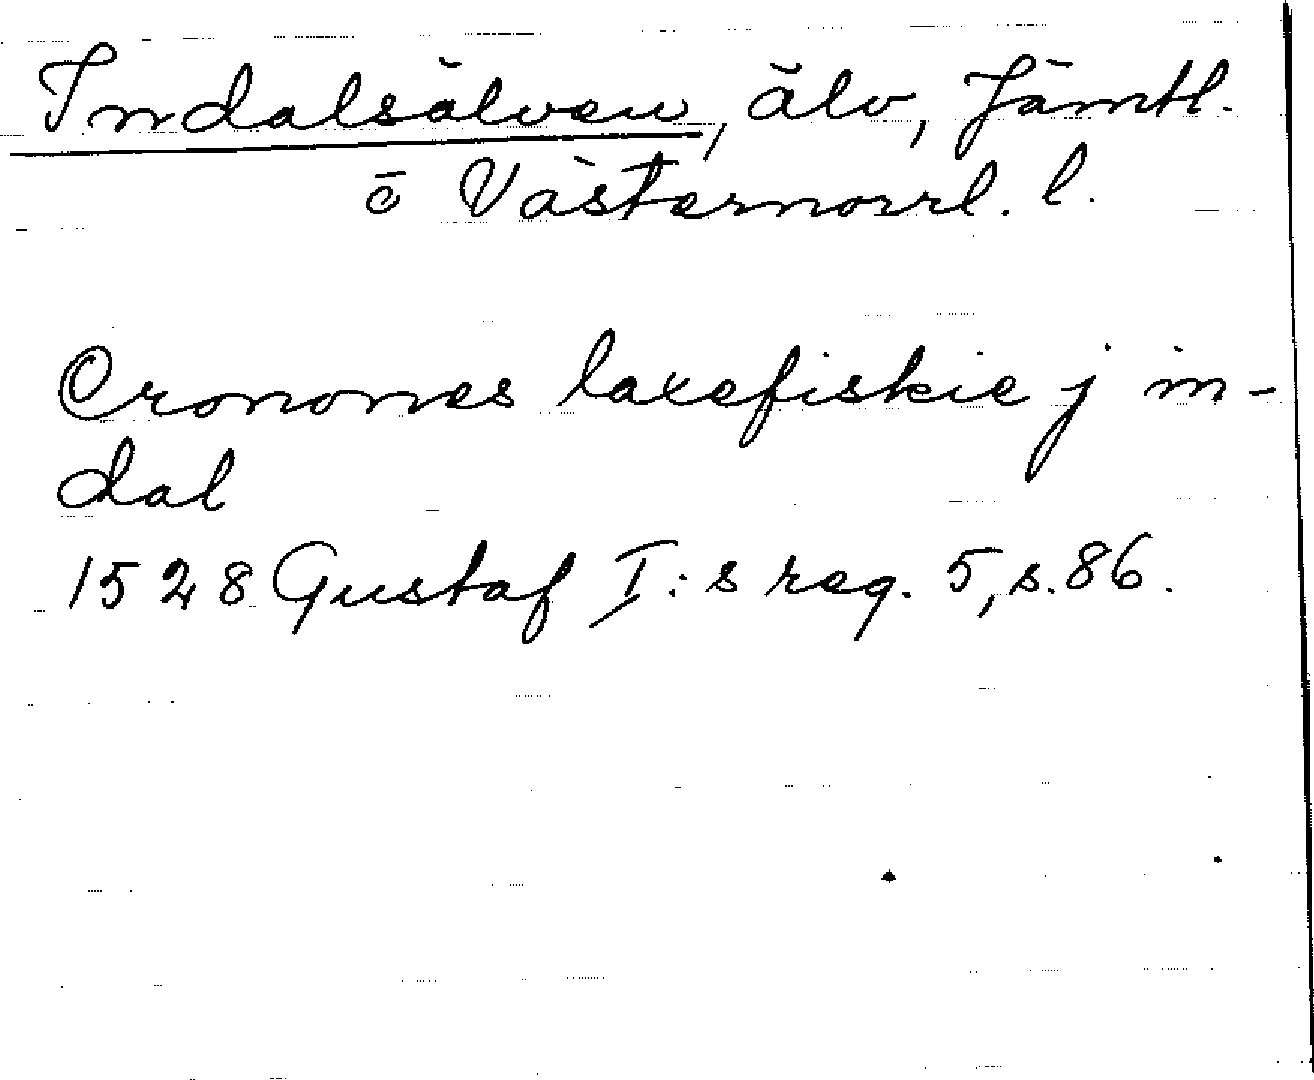 Indalsälven, älv, Jämtl.
o Västernorrl. l.
Crononnes laxefiskie j in-
dal
1528 Gustaf I:s reg. 5, s. 86.